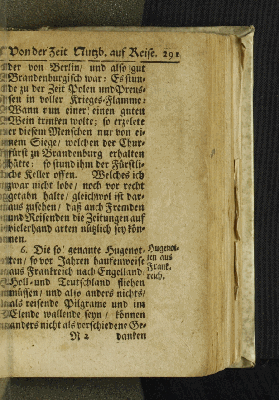 Von der Zeit Nutzb. auf Reise. 291
der von Berlin/ und also gut
Brandenburgisch war: Es stun-
de zu der Zeit Polen und Preus-
sen in voller Krieges-Flamme:
Wann nun einer einen guten
Wein trinken wolte; so erzelete
er diesem Menschen nur von ei-
nem Siege/ welchen der Chur-
fürst zu Brandenburg erhalten
hätte: so stund ihm der Fürstli-
che Keller offen. Welches ich
zwar nicht lobe/ noch vor recht
gethan halte/ gleichwol ist dar-
aus zusehen/ daß auch Fremden
und Reisenden die Zeitungen auf
vielerhand arten nützlich sey kön-
nen.
6. Die so genante Hugenot-
ten/ so vor Jahren hauffenweise
aus Frankreich nach Engelland/
Holl- und Teutschland fliehen
müssen/ und also anders nichts/
als reisende Pilgrame und im
Elende wallende seyn/ können
anders nicht als verschiedene Ge-
N 2 danken
Hugenot-
ten aus
Frank-
reich.